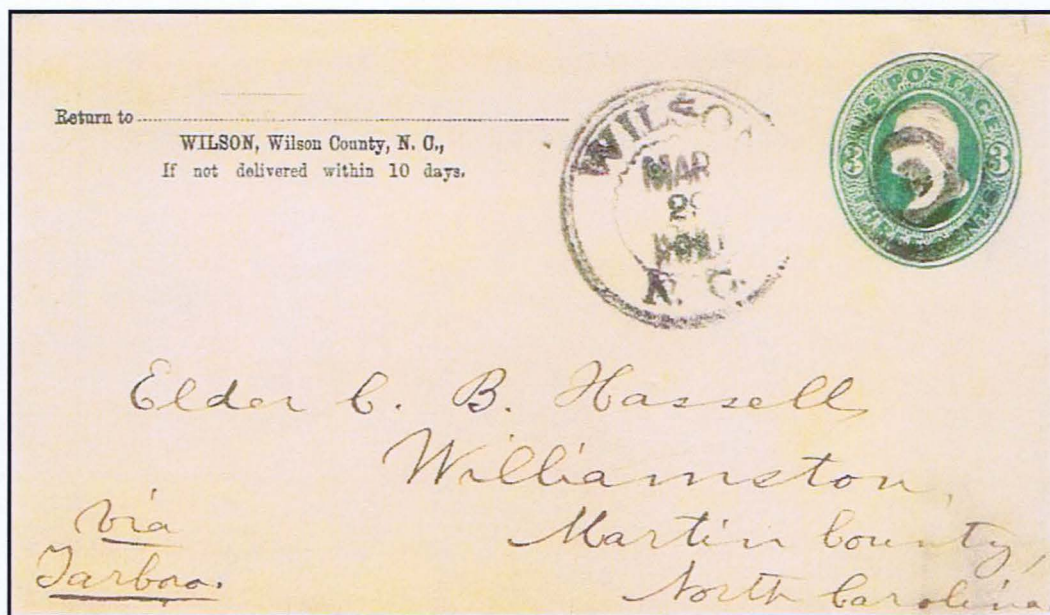 Return to
WILSON, Wilson County, N. C.,
If not delivered within 10 days.
WILSON
MAR
N. C.
U.S. POSTAGE
3 3
THREE CENTS
Elder C. B. Hassell,
Williamston,
Martin County,
North Carolina
via
Tarboro.